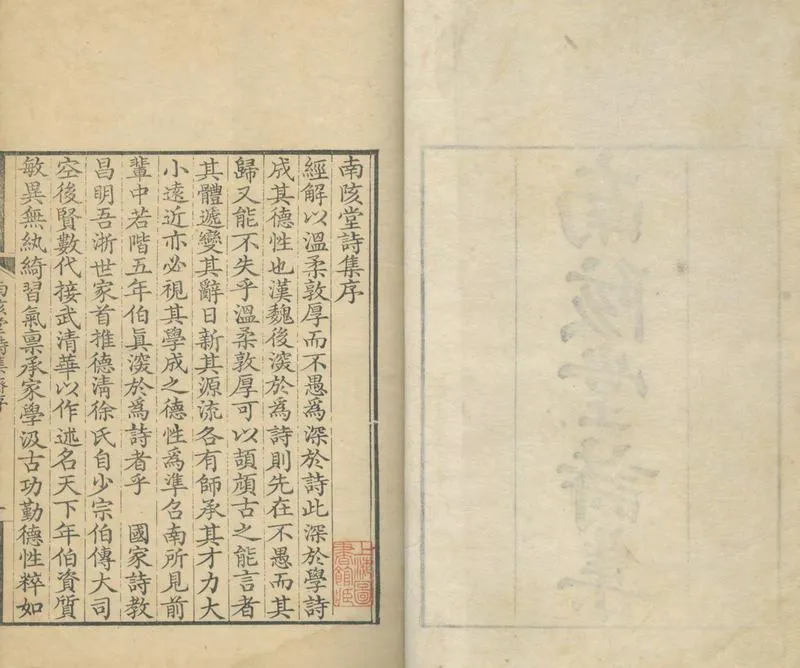 南陔堂詩集序
經解以溫柔敦厚而不愚爲深於詩此深於學詩
成其德性也漢魏後深於爲詩則先在不愚而其
歸又能不失乎溫柔敦厚可以頡頏古之能言者
其體遞變其辭日新其源流各有師承其才力大
小遠近亦必視其學成之德性爲準召南所見前
輩中若階五年伯眞深於爲詩者乎　國家詩教
昌明吾浙世家首推德清徐氏自少宗伯傳大司
空後賢數代接武清華以作述名天下年伯資質
敏異無紈綺習氣稟承家學汲古功勤德性粹如
南陔堂詩集
序
上海圖書館藏